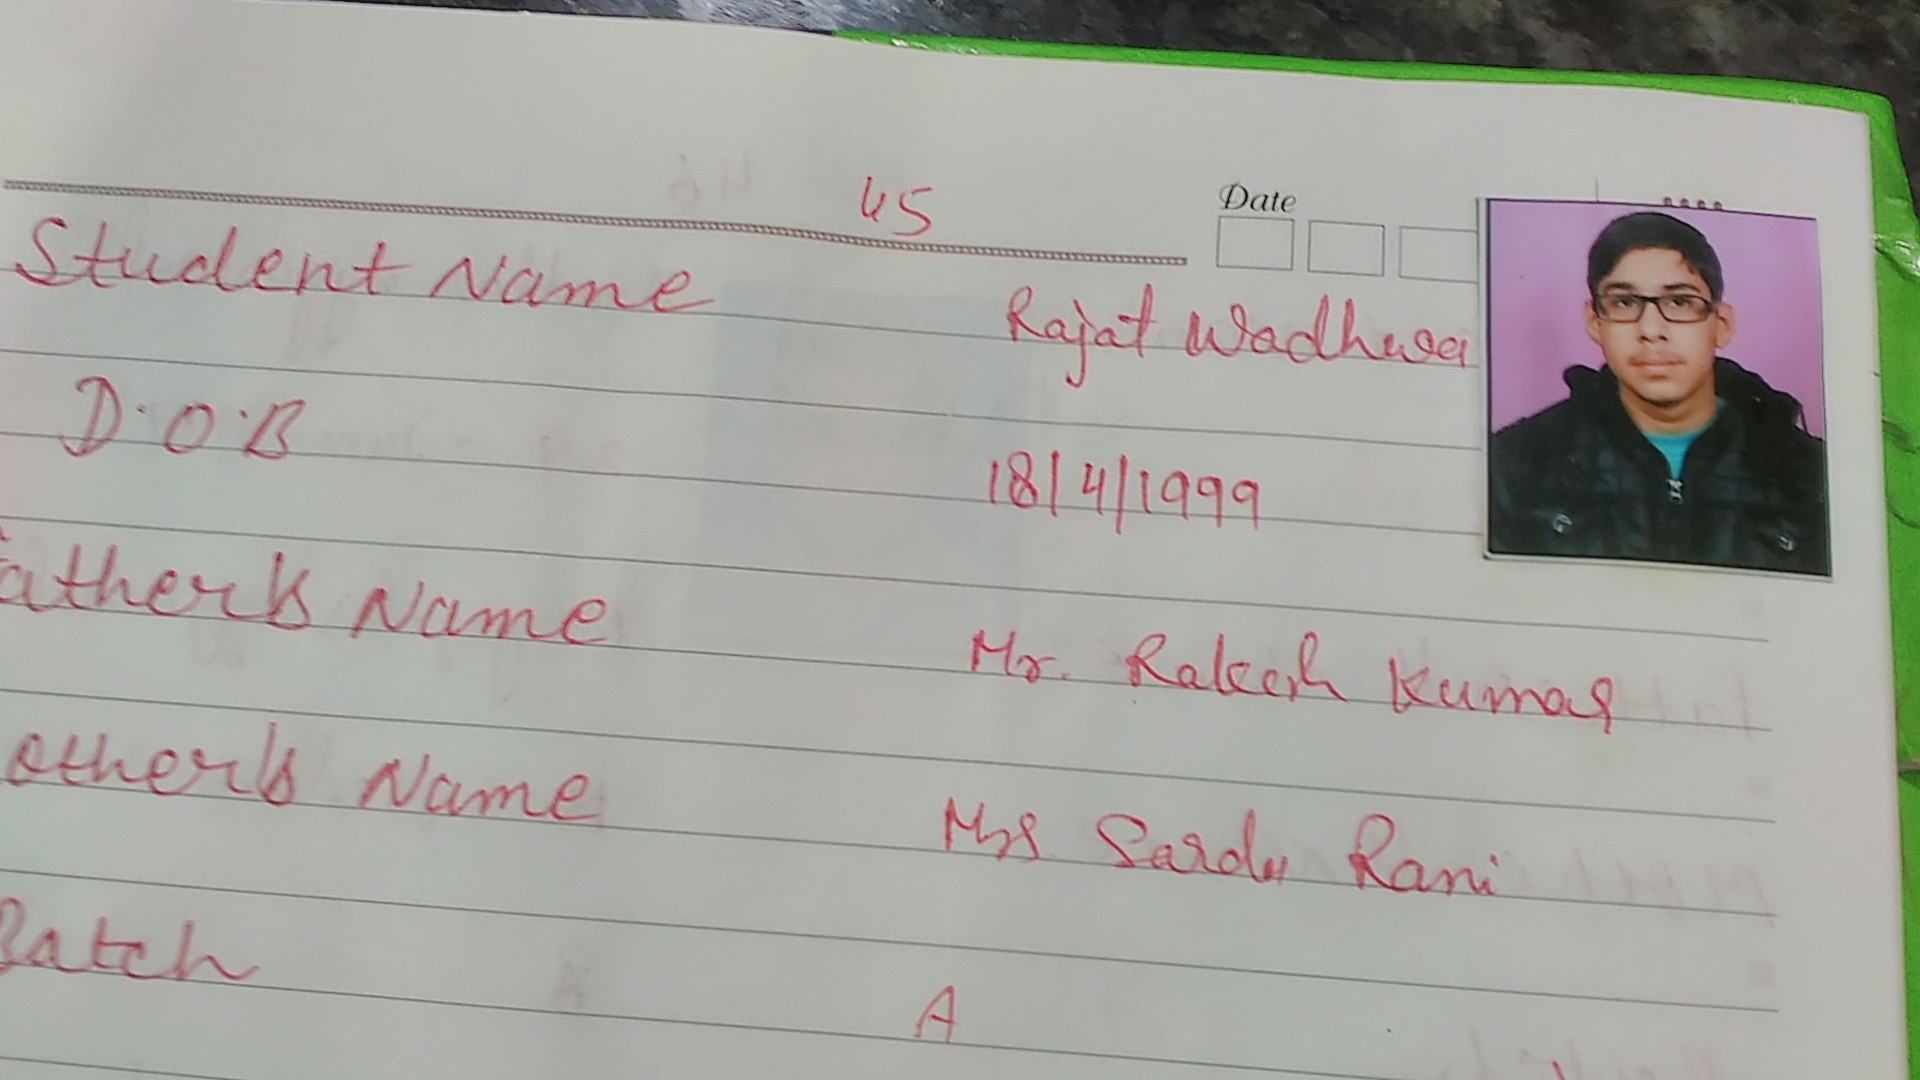 45
Date
Student Name Rajat Wadhwa
D.O.B 18/4/1999
ather's Name Mr. Rakesh Kumar
other's Name Mrs Rani
Batch A